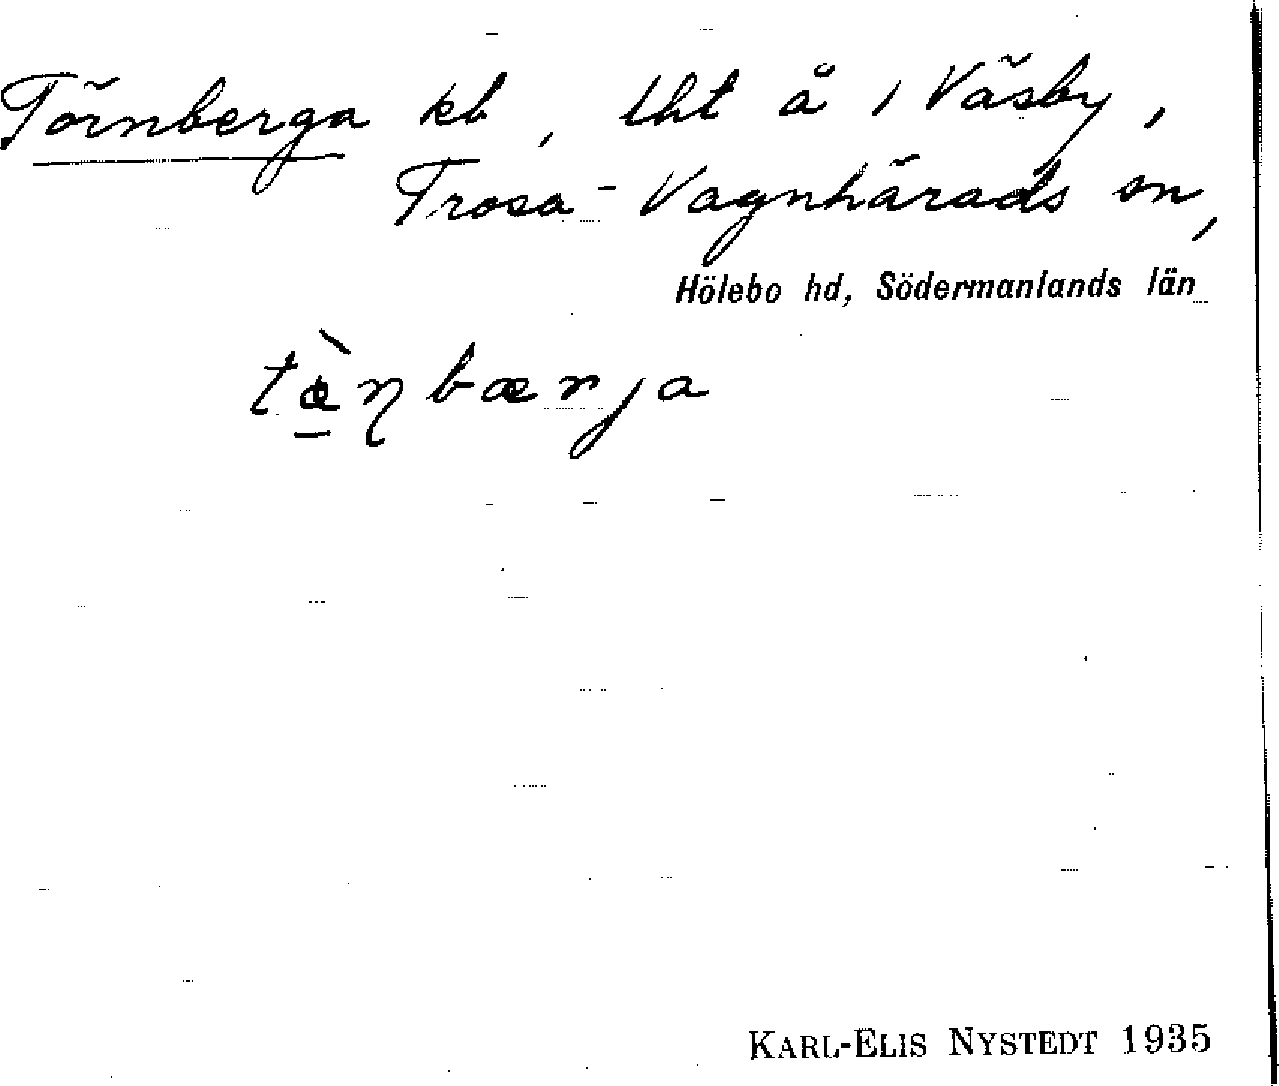 Törnberga kl, lht å 1 Väsby,
Trosa-Vagnhärads sn,
Hölebo hd, Södermanlands län
KARL-ELIS NYSTEDT 1935